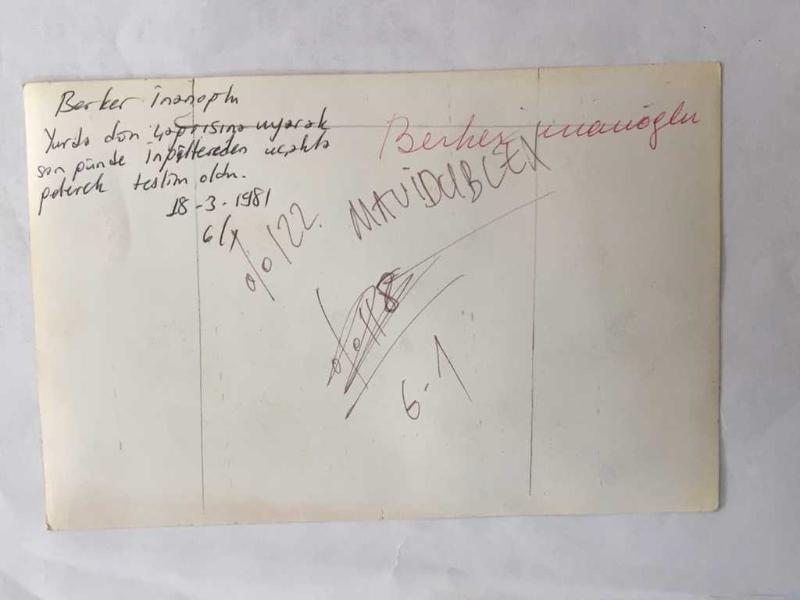 Berker İnanoğlu
Yurda dön çağrısına uyarak
son günde İngiltereden uçakla
gelerek teslim oldu.
18-3-1981
6/x
Berker inanoğlu
%122.
MAVİDUBLEX
%118
6-1